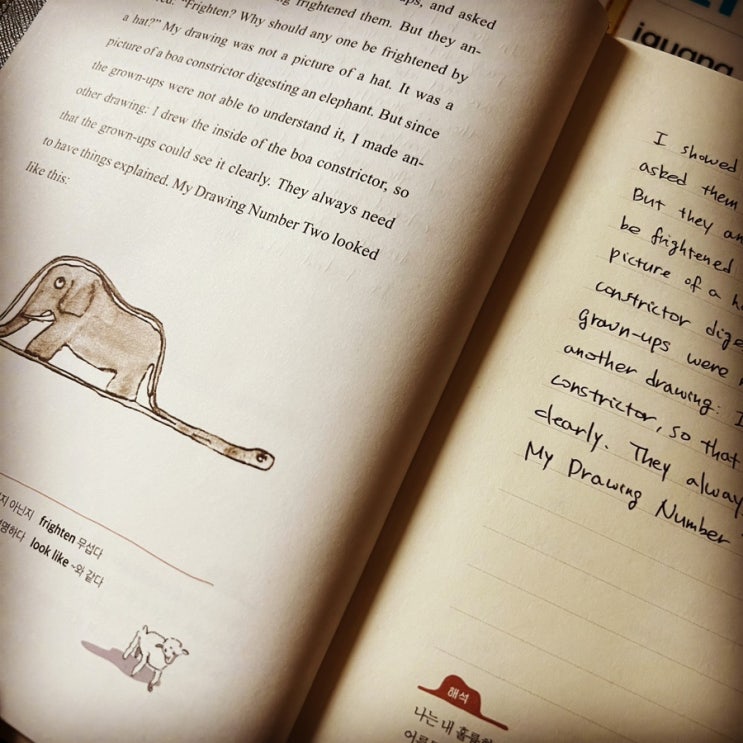 ps, and asked
frightened them. But they an-
"Frighten? Why should any one be frightened by
a hat?" My drawing was not a picture of a hat. It was a
picture of a boa constrictor digesting an elephant. But since
the grown-ups were not able to understand it, I made an-
other drawing: I drew the inside of the boa constrictor, so
that the grown-ups could see it clearly. They always need
to have things explained. My Drawing Number Two looked
like this:
지 아닌지 frighten 무섭다
명하다 look like ~와 같다
iguana
I showed
asked them
But they an
be frightened
picture of a h
constrictor dige
grown-ups were
another drawing: I
constrictor, so that
clearly. They alway
My Drawing Number
해석
나는 내 훌륭한